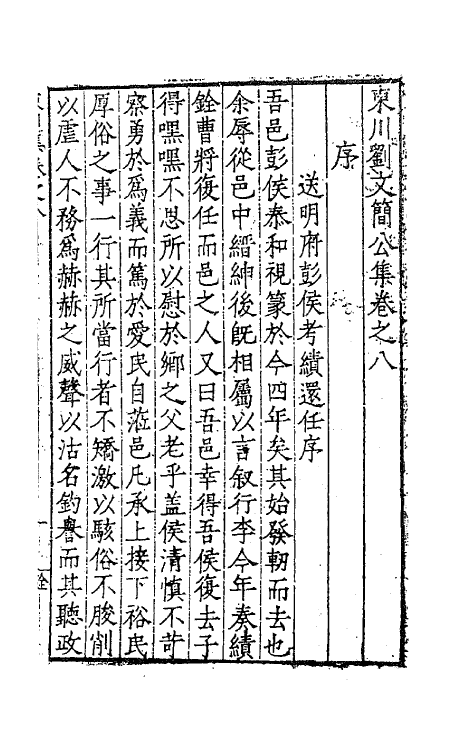 東川劉文簡公集卷之八
序
送明府彭侯考績還任序
吾邑彭侯泰和視篆於今四年矣其始發軔而去也
余辱從邑中縉紳後旣相屬以言叙行李今年奏績
銓曹將復任而邑之人又曰吾邑幸得吾侯復去子
得嘿嘿不思所以慰於鄉之父老乎盖侯清慎不苛
察勇於爲義而篤於愛民自蒞邑凡承上接下裕民
厚俗之事一行其所當行者不矯激以駭俗不朘削
以虐人不務爲赫赫之威聲以沽名釣譽而其聽政